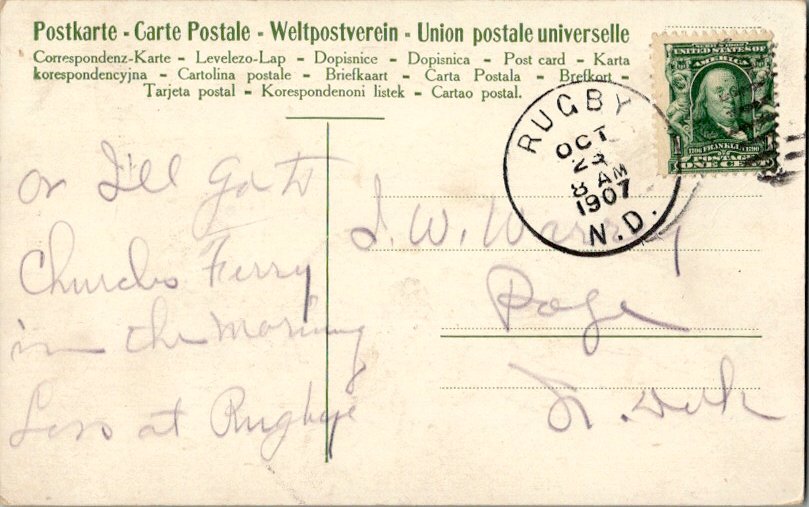 Postkarte - Carte Postale - Weltpostverein - Union postale universelle
Correspondenz-Karte – Levelezo-Lap – Dopisnice – Dopisnica – Post card – Karta
korespondencyjna – Cartolina postale – Briefkaart – Carta Postala – Brefkort –
Tarjeta postal – Korespondenoni listek – Cartao postal.
SERIES 1902
UNITED STATES OF
AMERICA
1706 FRANKLIN 1790
POSTAGE
ONE CENT
RUGBY
OCT
23
8 AM
1907
N.D.
or I'll Go to
Churchs Ferry
in the morning
at Rugby
J. W. Warry
Page
N. Dak